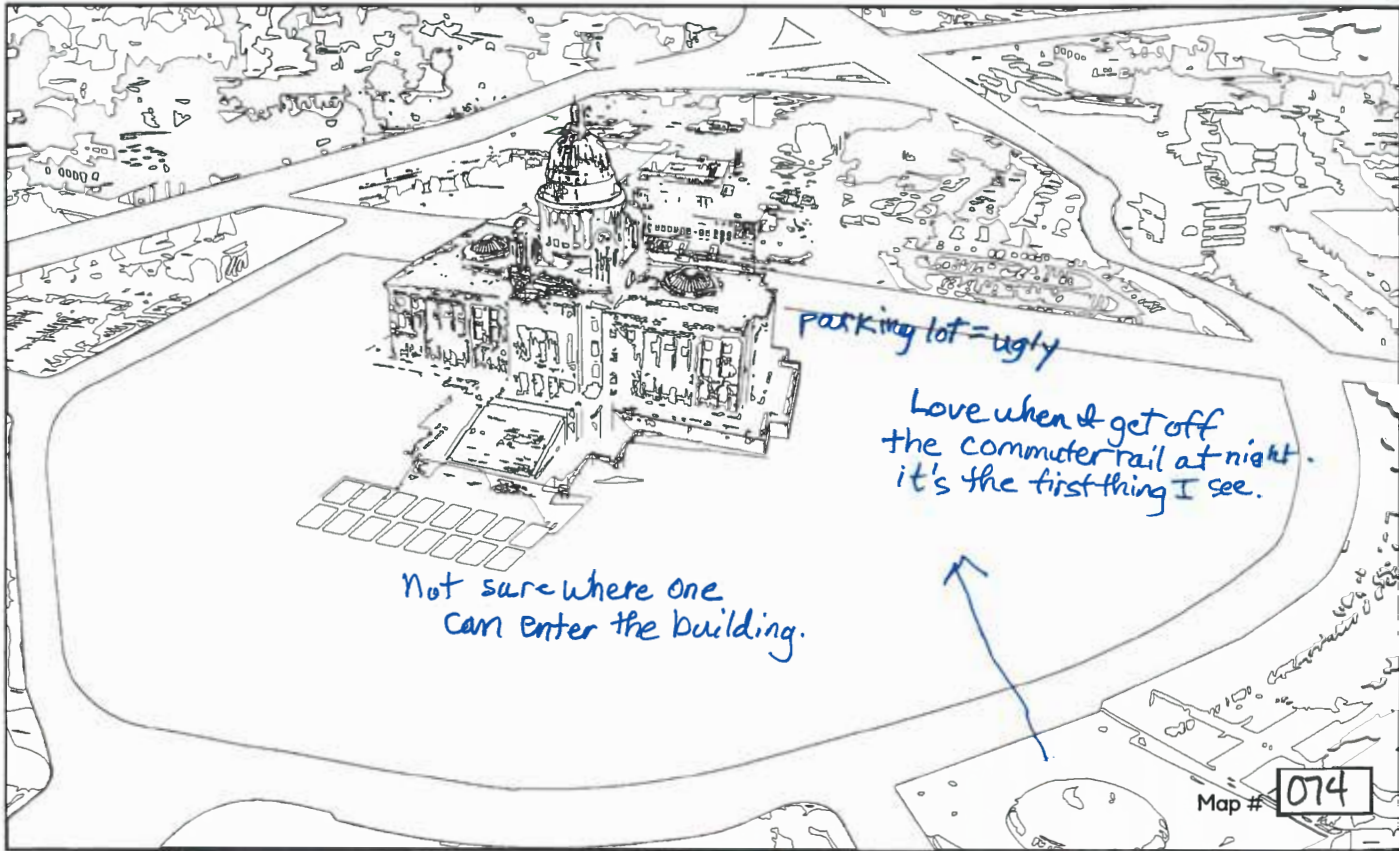 parking lot = ugly
Love when I get off
the commuter rail at night.
it's the first thing I see.
Not sure where one
can enter the building.
Map # 074